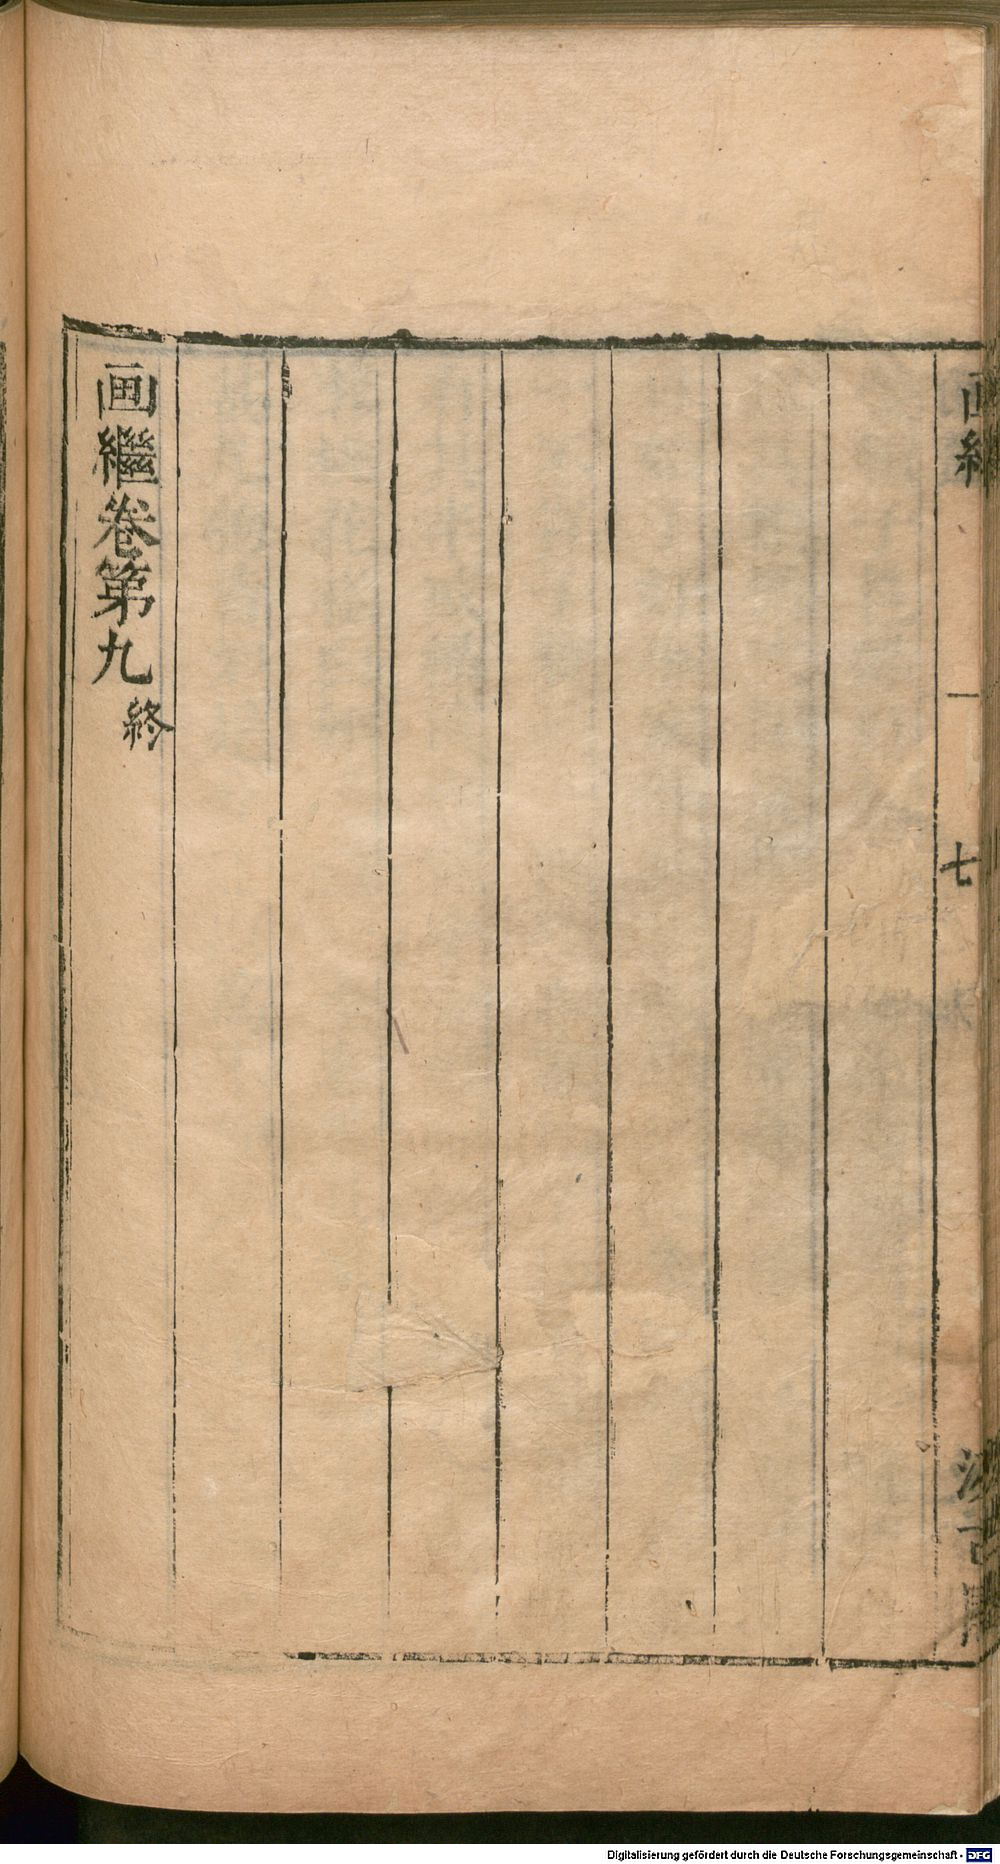 七
画繼卷第九終
Digitalisierung gefördert durch die Deutsche Forschungsgemeinschaft - DFG